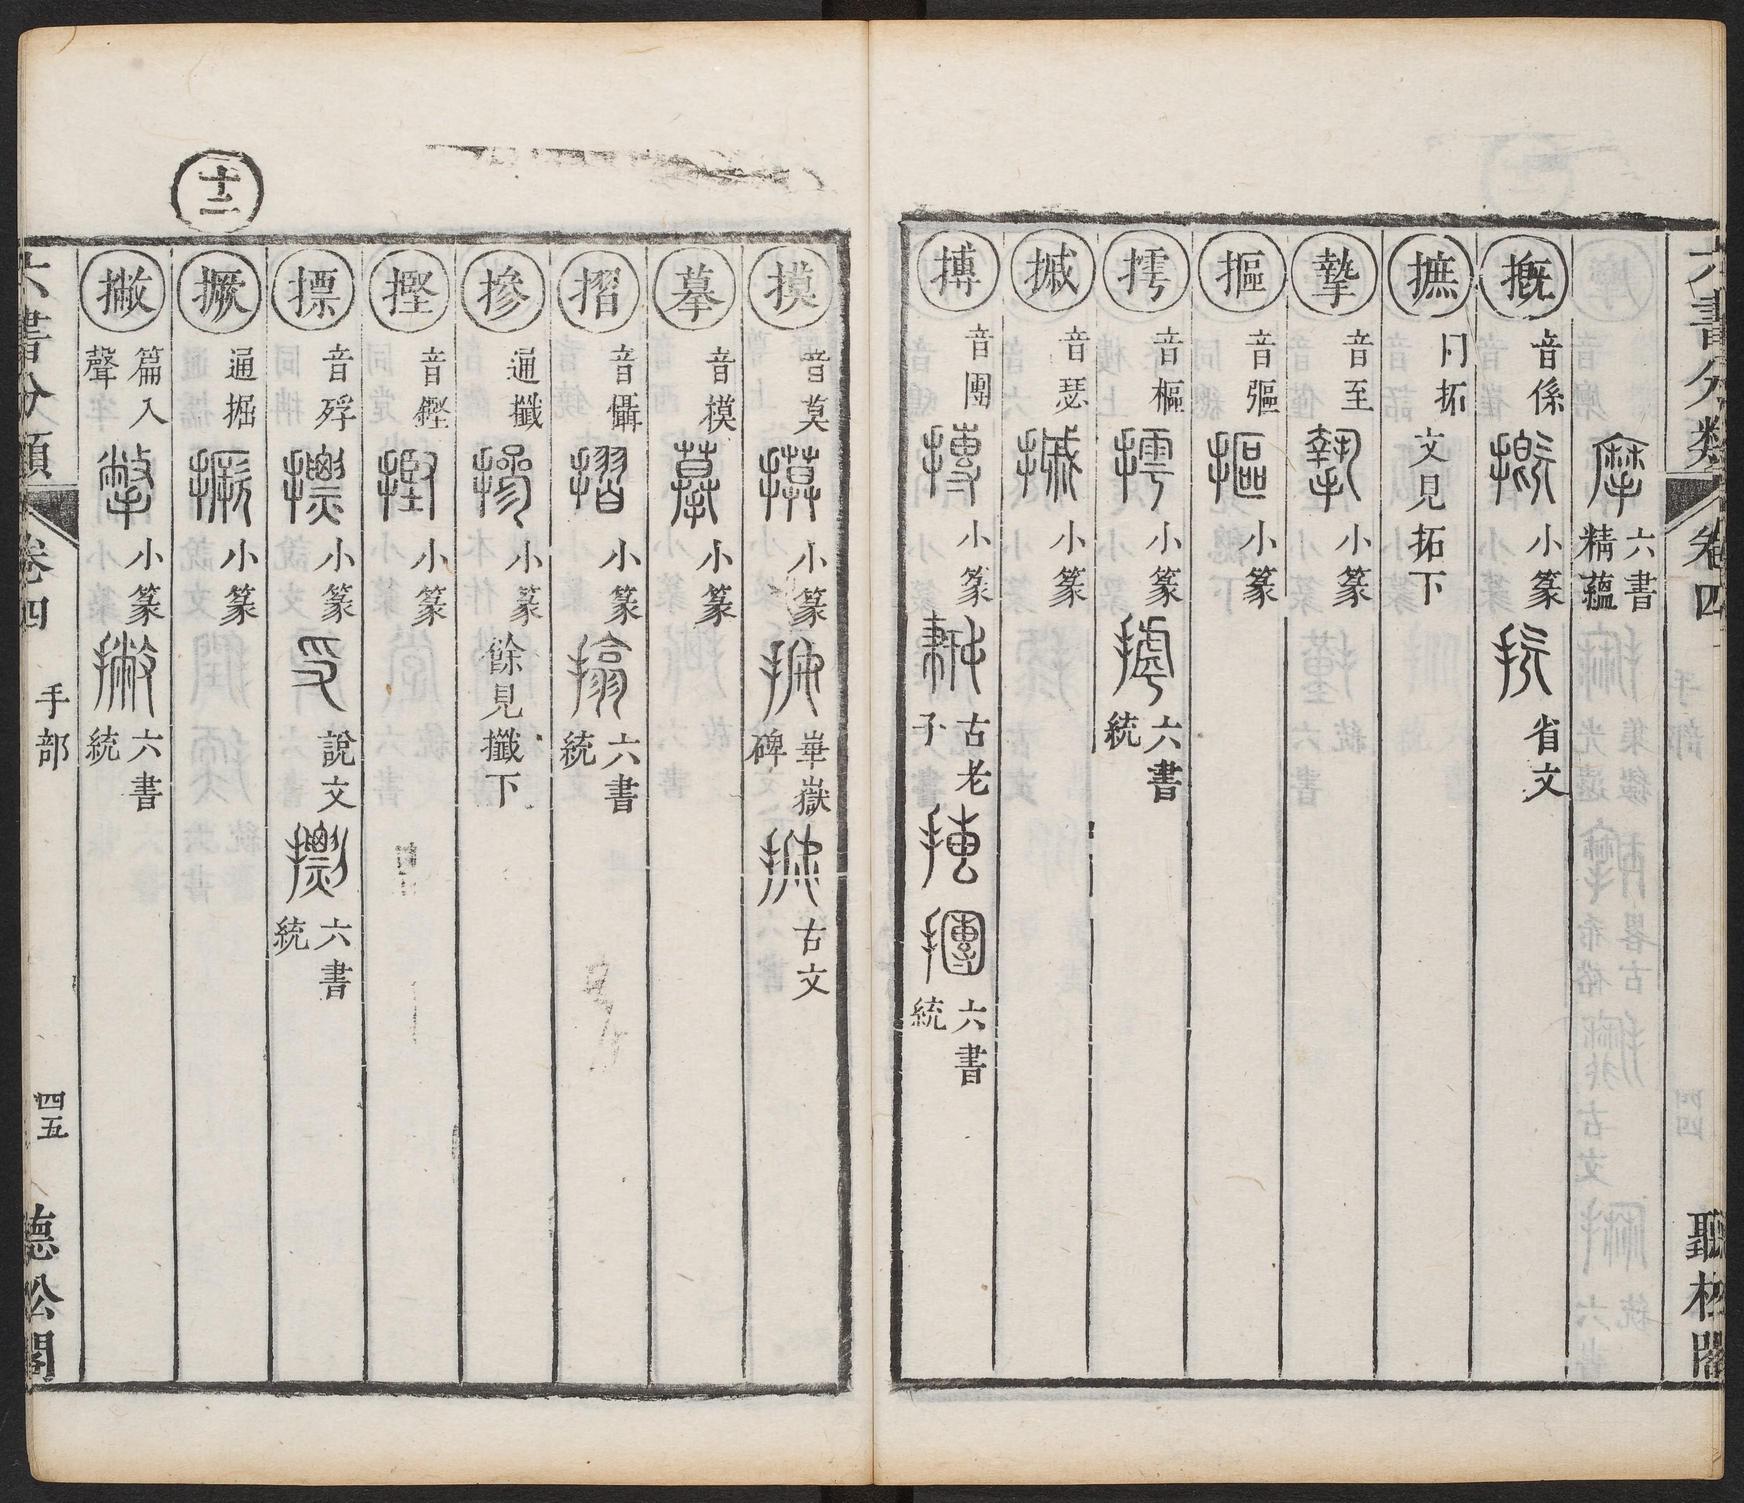 六書分類
卷四
手部
四四
聽松閣
六書精蘊
摡
音係
小篆
省文
摭
同拓
文見拓下
摯
音至
小篆
摳
音彄
小篆
摴
音樞
小篆
六書統
摵
音瑟
小篆
摶
音團
小篆
古老子
六書統
摸
音莫
小篆
崋嶽碑
古文
摹
音模
小篆
摺
音懾
小篆
六書統
摻
通攕
小篆
餘見攕下
摼
音鏗
小篆
摽
音殍
小篆
說文
六書統
撅
通掘
小篆
撇
篇入聲
小篆
六書統
十二
六書分類
卷四
手部
四五
聽松閣